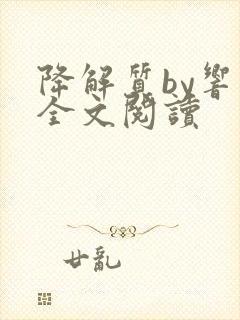 降解質by響
全文閱讀
廿亂